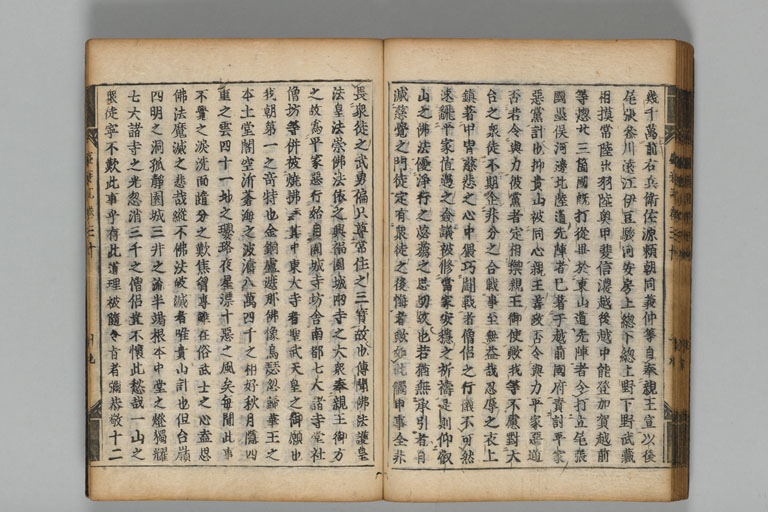 幾千萬前右兵衛佐源頼朝同義仲等自奉親王宣以後
尾張參川遠江伊豆駿河安房上總下總上野下野武藏
相摸常陸出羽陸奥甲斐信濃越後越中能登加賀越前
等惣北三箇國既打從畢於東山道先陣者今打立尾張
國墨俣河邊北陸道先陣者已著于越前國府責討平家
惡黨計也抑貴山被同心親王善政否令與力平家惡道
否若令與力彼黨者定相禦親王御使歟我等不慮對大
台之衆徒不期企非分之合戰事至無益哉忍辱之衣上
鎮著甲冑慈悲之心中猥巧鬪戰者僧侶之行儀不可然
速飜平家値遇之僉議被修當家安穩之祈祷是則仰叡
山之佛法優淨行之思切故也若猶無承引者自
滅慈覺之門徒定有衆徒之後悔者歟如此觸申事全非
畏衆徒之武勇偏只尊當住之三寶故也傳聞佛法護皇
法皇法崇佛法依之興福園城兩寺之大衆奉親王御方
之故爲平家惡行始自園城寺坊舎南都七大諸寺堂社
僧坊等併被燒拂云云其中東大寺者聖武天皇之御願也
我朝第一之奇特也金銅盧遮那佛像烏瑟忽歸華王之
本土堂閣空泝蒼海之波濤八萬四千之相好秋月隱四
重之雲四十一地之瓔珞夜星漂十惡之風矣毎聞此事
不覺之涙洗面隨分之歎焦胸專雖在俗武士之心盍思
佛法魔滅之悲哉縱不佛法破滅者唯貴山計也但台嶺
四明之洞孤靜園城三井之論半竭根本中堂之燈獨耀
七大諸寺之光忽消三千之僧侶豈不懷此愁哉一山之
衆徒寧不歎此事乎存此道理被隨令旨者彌恭敬十二